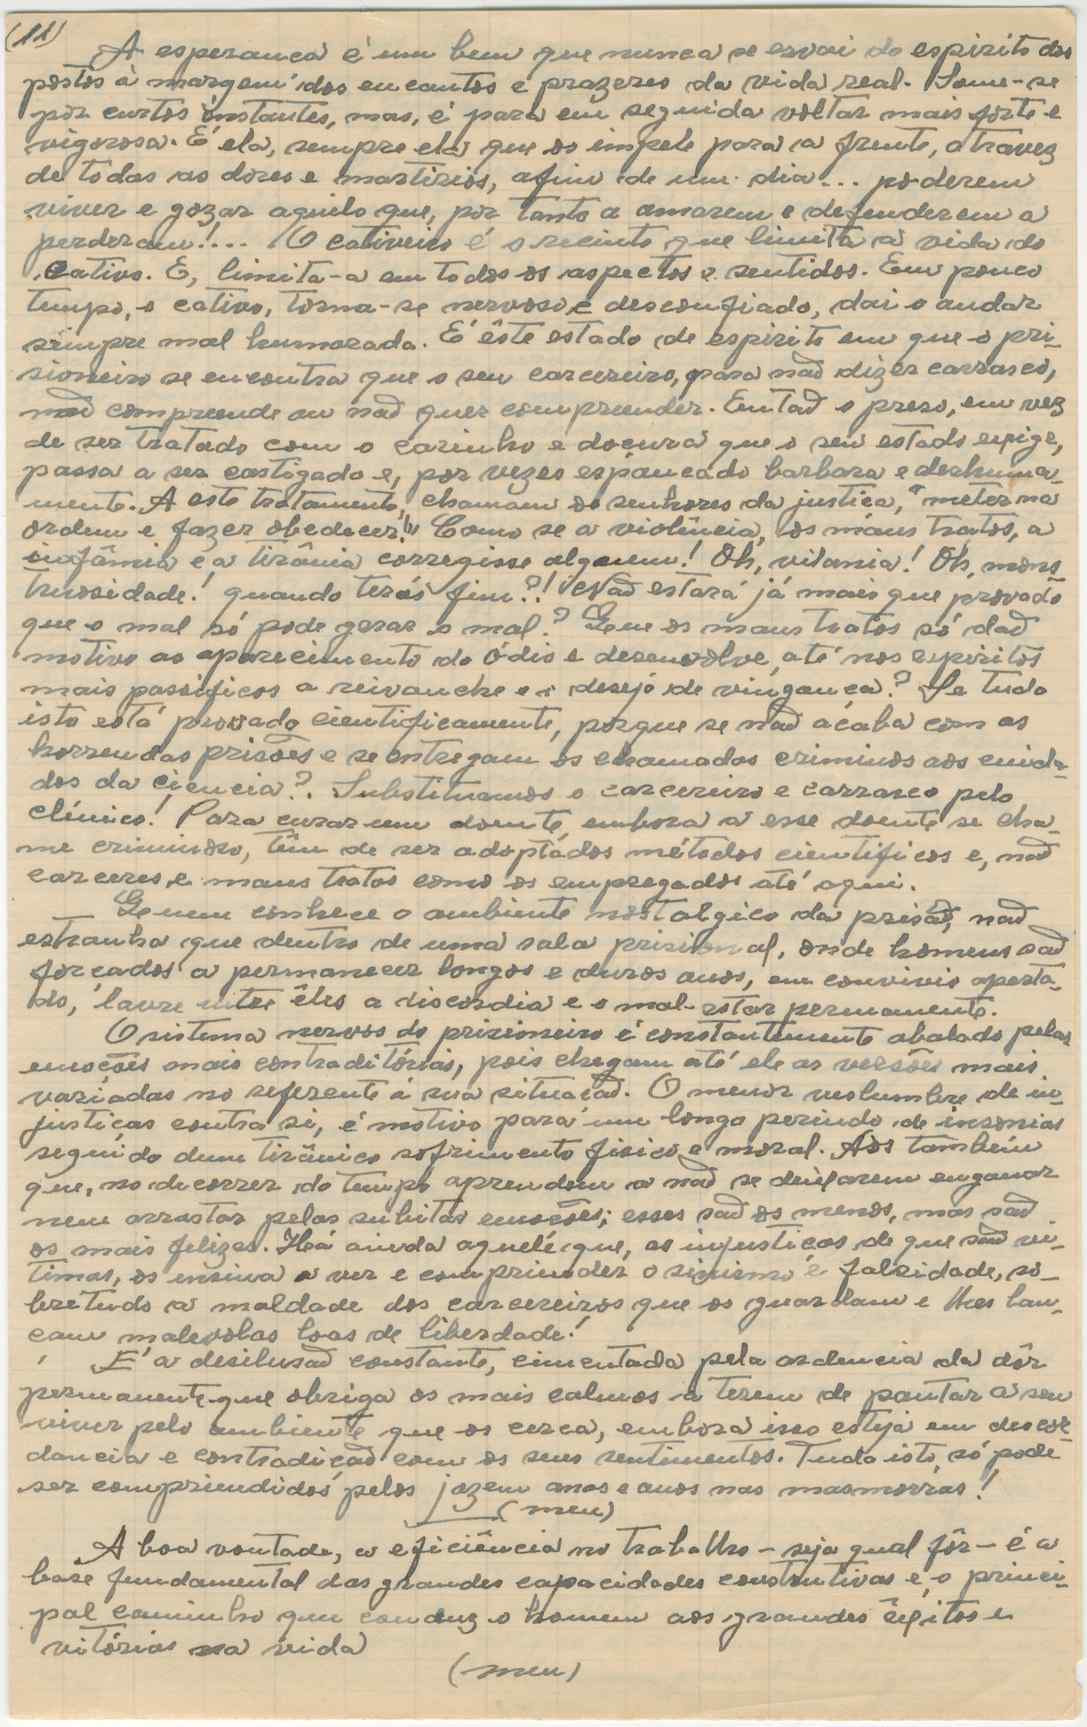 (11)
A esperanca é um bem que nunca se esvai do espirito dos
postos à margem dos encantos e prazeres da vida real. Some-se
por curtos instantes, mas, é para em seguida voltar mais forte e
vigorosa. É ela, sempre ela que os impele para a frente, atravez
de todas as dores e martirios, afim de um dia... poderem
viver e gozar aquilo que, por tanto a amarem e defenderem a
perderam!... O cativeiro é o recinto que limita a vida do
cativo. E, limita-a em todos os aspectos e sentidos. Em pouco
tempo, o cativo, torna-se nervoso e desconfiado, dai o andar
sempre mal humorado. É êste estado de espirito em que o pri-
sioneiro se encontra que o seu carcereiro, para naõ dizer carrasco,
naõ compreende ou naõ quer compreender. Entaõ o preso, em vez
de ser tratado com o carinho e doçura que o seu estado exige,
passa a ser castigado e, por vezes espancado barbara e deshuma-
mente. A este tratamento, chamam os senhores da justica, "meter na
ordem e fazer obedecer!" Como se a violência, os maus tratos, a
infâmia e a tirânia corregisse alguem! Oh, vilania! Oh, mons
truosidade! quando terás fim?! Naõ estará já mais que provado
que o mal só pode gerar o mal? Que os maus tratos só daõ
motivo ao aparecimento do ódio e desenvolve até nos espiritos
mais passificos a reivanche e o desejo de vingança? Se tudo
isto está provado cientificamente, porque se naõ acaba com as
horrendas prisões e se entregam os chamados criminos aos cuida-
dos da ciencia?. Substituamos o carcereiro e carrasco pelo
clínico! Para curar um doente, embora a esse doente se cha-
me criminoso, têm de ser adoptados métodos cientificos e, naõ
carceres, e maus tratos como os empregados até aqui.
Quem conhece o ambiente nostalgico da prisaõ, naõ
estranha que dentro de uma sala prisional, onde homens saõ
forçados a permanecer longos e duros anos, em convivio aperta-
do, lavre entre êles a discordia e o mal-estar permanente.
O sistema nervoso do prisioneiro é constantemente abalado pelas
emoções mais contraditórias, pois chegam até ele as versões mais
variadas no referente á sua situaçaõ. O menor veslumbre de in-
justiças contra si, é motivo para um longo periodo de insonias
seguido dum tirânico sofrimento fisico e moral. Aos também
que, no decorrer do tempo aprendem a naõ se deixarem enganar
nem arrastar pelas subitas emoções; esses saõ os menos, mas saõ
os mais felizes. Há ainda aquele que, as injusticas de que saõ vi-
timas, os ensina a ver e compriender o sinismo e falsidade, so-
bretudo a maldade dos carcereiros que os guardam e lhes lan-
çam malevolas loas de liberdade!
É a desilusaõ constante, cimentada pela ardencia da dôr
permanente que obriga os mais calmos a terem de pautar o seu
viver pelo ambiente que os cerca, embora isso esteja em descor-
dancia e contradiçaõ com os seus sentimentos. Tudo isto, só pode
ser compriendidos pelos jazem anos e anos nas masmorras!
(meu)
A boa vontade, a eficiência no trabalho - seja qual fôr - é a
base fundamental das grandes capacidades construtivas e, o princi-
pal caminho que conduz o homem aos grandes êxitos e
vitórias na vida
(meu)